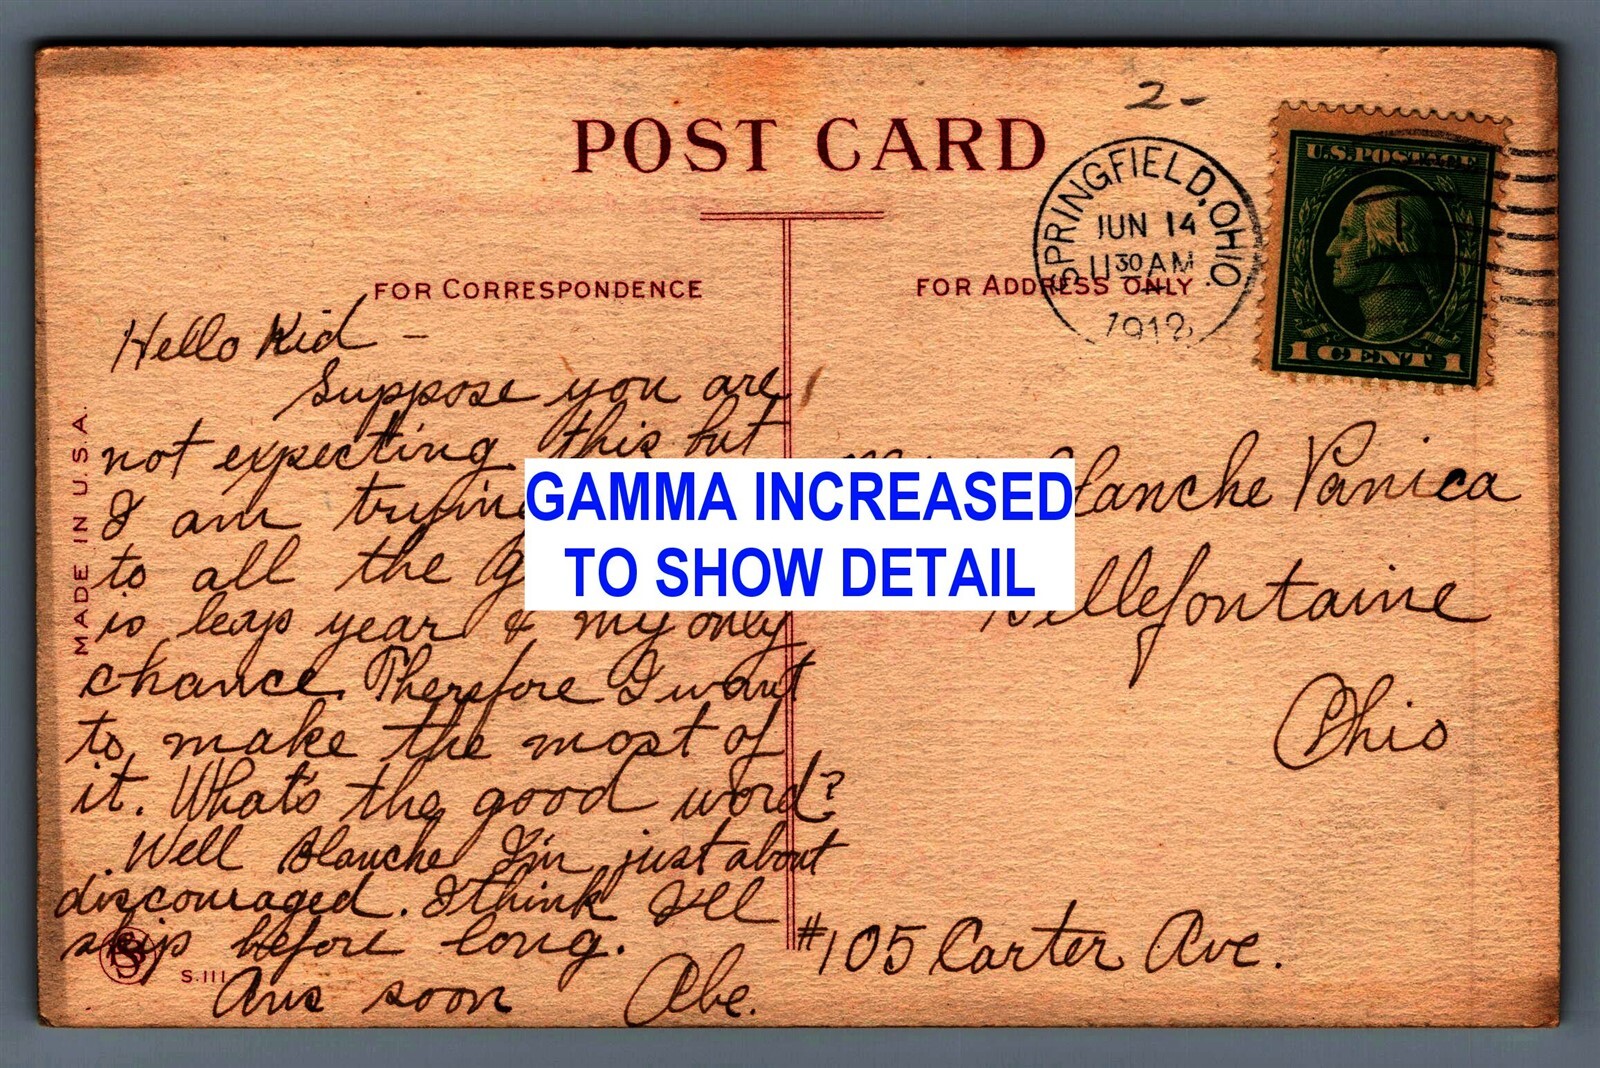 POST CARD
2-
SPRINGFIELD, OHIO.
JUN 14
11 30 AM
1912
U.S. POSTAGE
1 CENT 1
FOR CORRESPONDENCE
FOR ADDRESS ONLY
MADE IN U.S.A.
Hello Kid -
Suppose you are
not expecting this but
I am trying
to all the
is leap year & my only
chance. Therefore I want
to make the most of
it. What's the good word?
Well Blanche I'm just about
discouraged. I think I'll
skip before long.
Ans soon Abe.
S.111
GAMMA INCREASED
TO SHOW DETAIL
Blanche
Bellefontaine
Ohio
#105 Carter Ave.